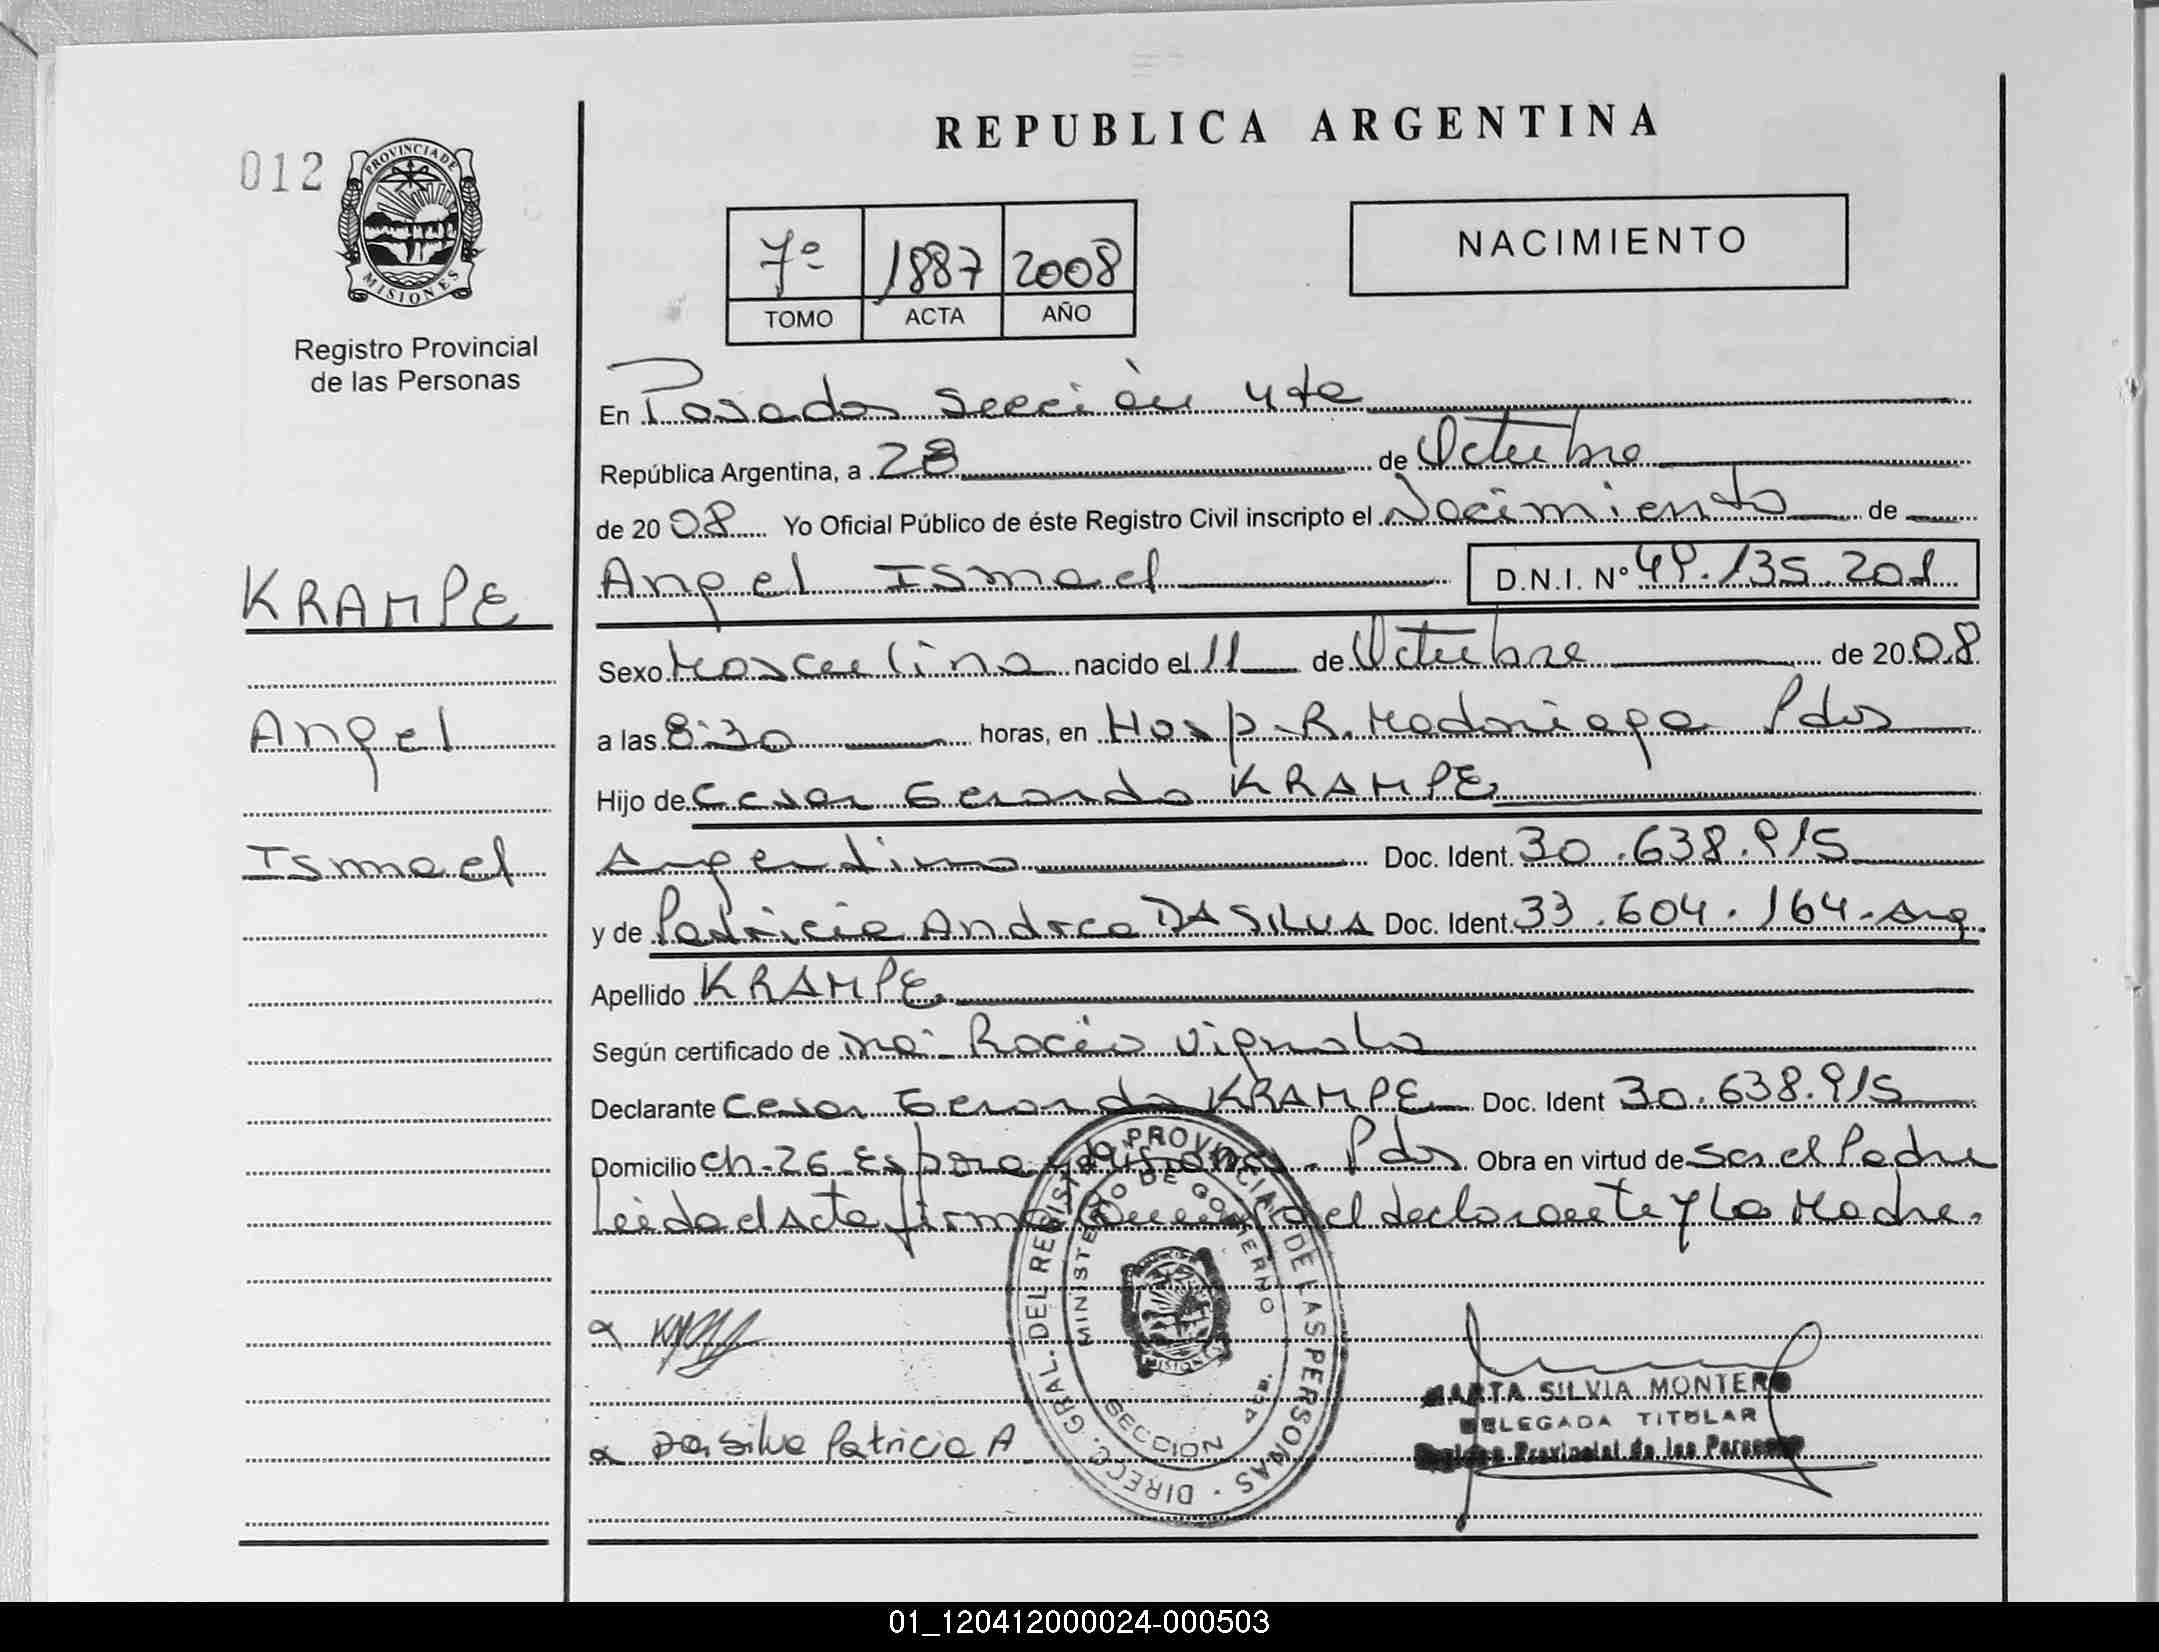 REPUBLICA ARGENTINA
012
PROVINCIA DE
MISIONES
Registro Provincial
de las Personas
7º 1887 2008
TOMO ACTA AÑO
NACIMIENTO
En Posadas sección 4ta
República Argentina, a 28 de Octubre
de 2008 Yo Oficial Público de éste Registro Civil inscripto el Nacimiento de
KRAMPE
Angel Ismael D.N.I. Nº 49.135.201
Sexo Masculino nacido el 11 de Octubre de 2008
Angel
a las 8:30 horas, en Hosp. R. Madariaga Pdas
Hijo de Cesar Gerardo KRAMPE
Ismael
Argentino Doc. Ident. 30.638.915
y de Patricia Andrea DA SILVA Doc. Ident. 33.604.164-Arg.
Apellido KRAMPE
Según certificado de Rocío Vignolo
Declarante Cesar Gerardo KRAMPE Doc. Ident 30.638.915
Domicilio Ch-26 Espora y Pdas. Obra en virtud de Ser el Padre
Leída el Acta firma el declarante y La Madre.
DIRECC. GRAL. DEL REGISTRO PROVINCIAL DE LAS PERSONAS
MINISTERIO DE GOBIERNO
MISIONES
SECCION 4ta.
MARTA SILVIA MONTERO
DELEGADA TITULAR
Registro Provincial de las Personas
Da Silva Patricia A
01_120412000024-000503